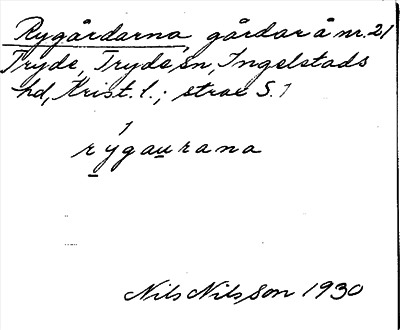 Rygårdarna, gårdar å nr. 21
Tryde, Tryde sn, Ingelstads
hd, Krist. l.; strax S. 1
rygaurana
Nils Nilsson 1930